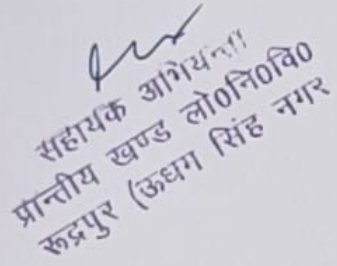 सहायक अभियन्ता
प्रान्तीय खण्ड लो०नि०वि०
रूद्रपुर (ऊधग सिंह नगर